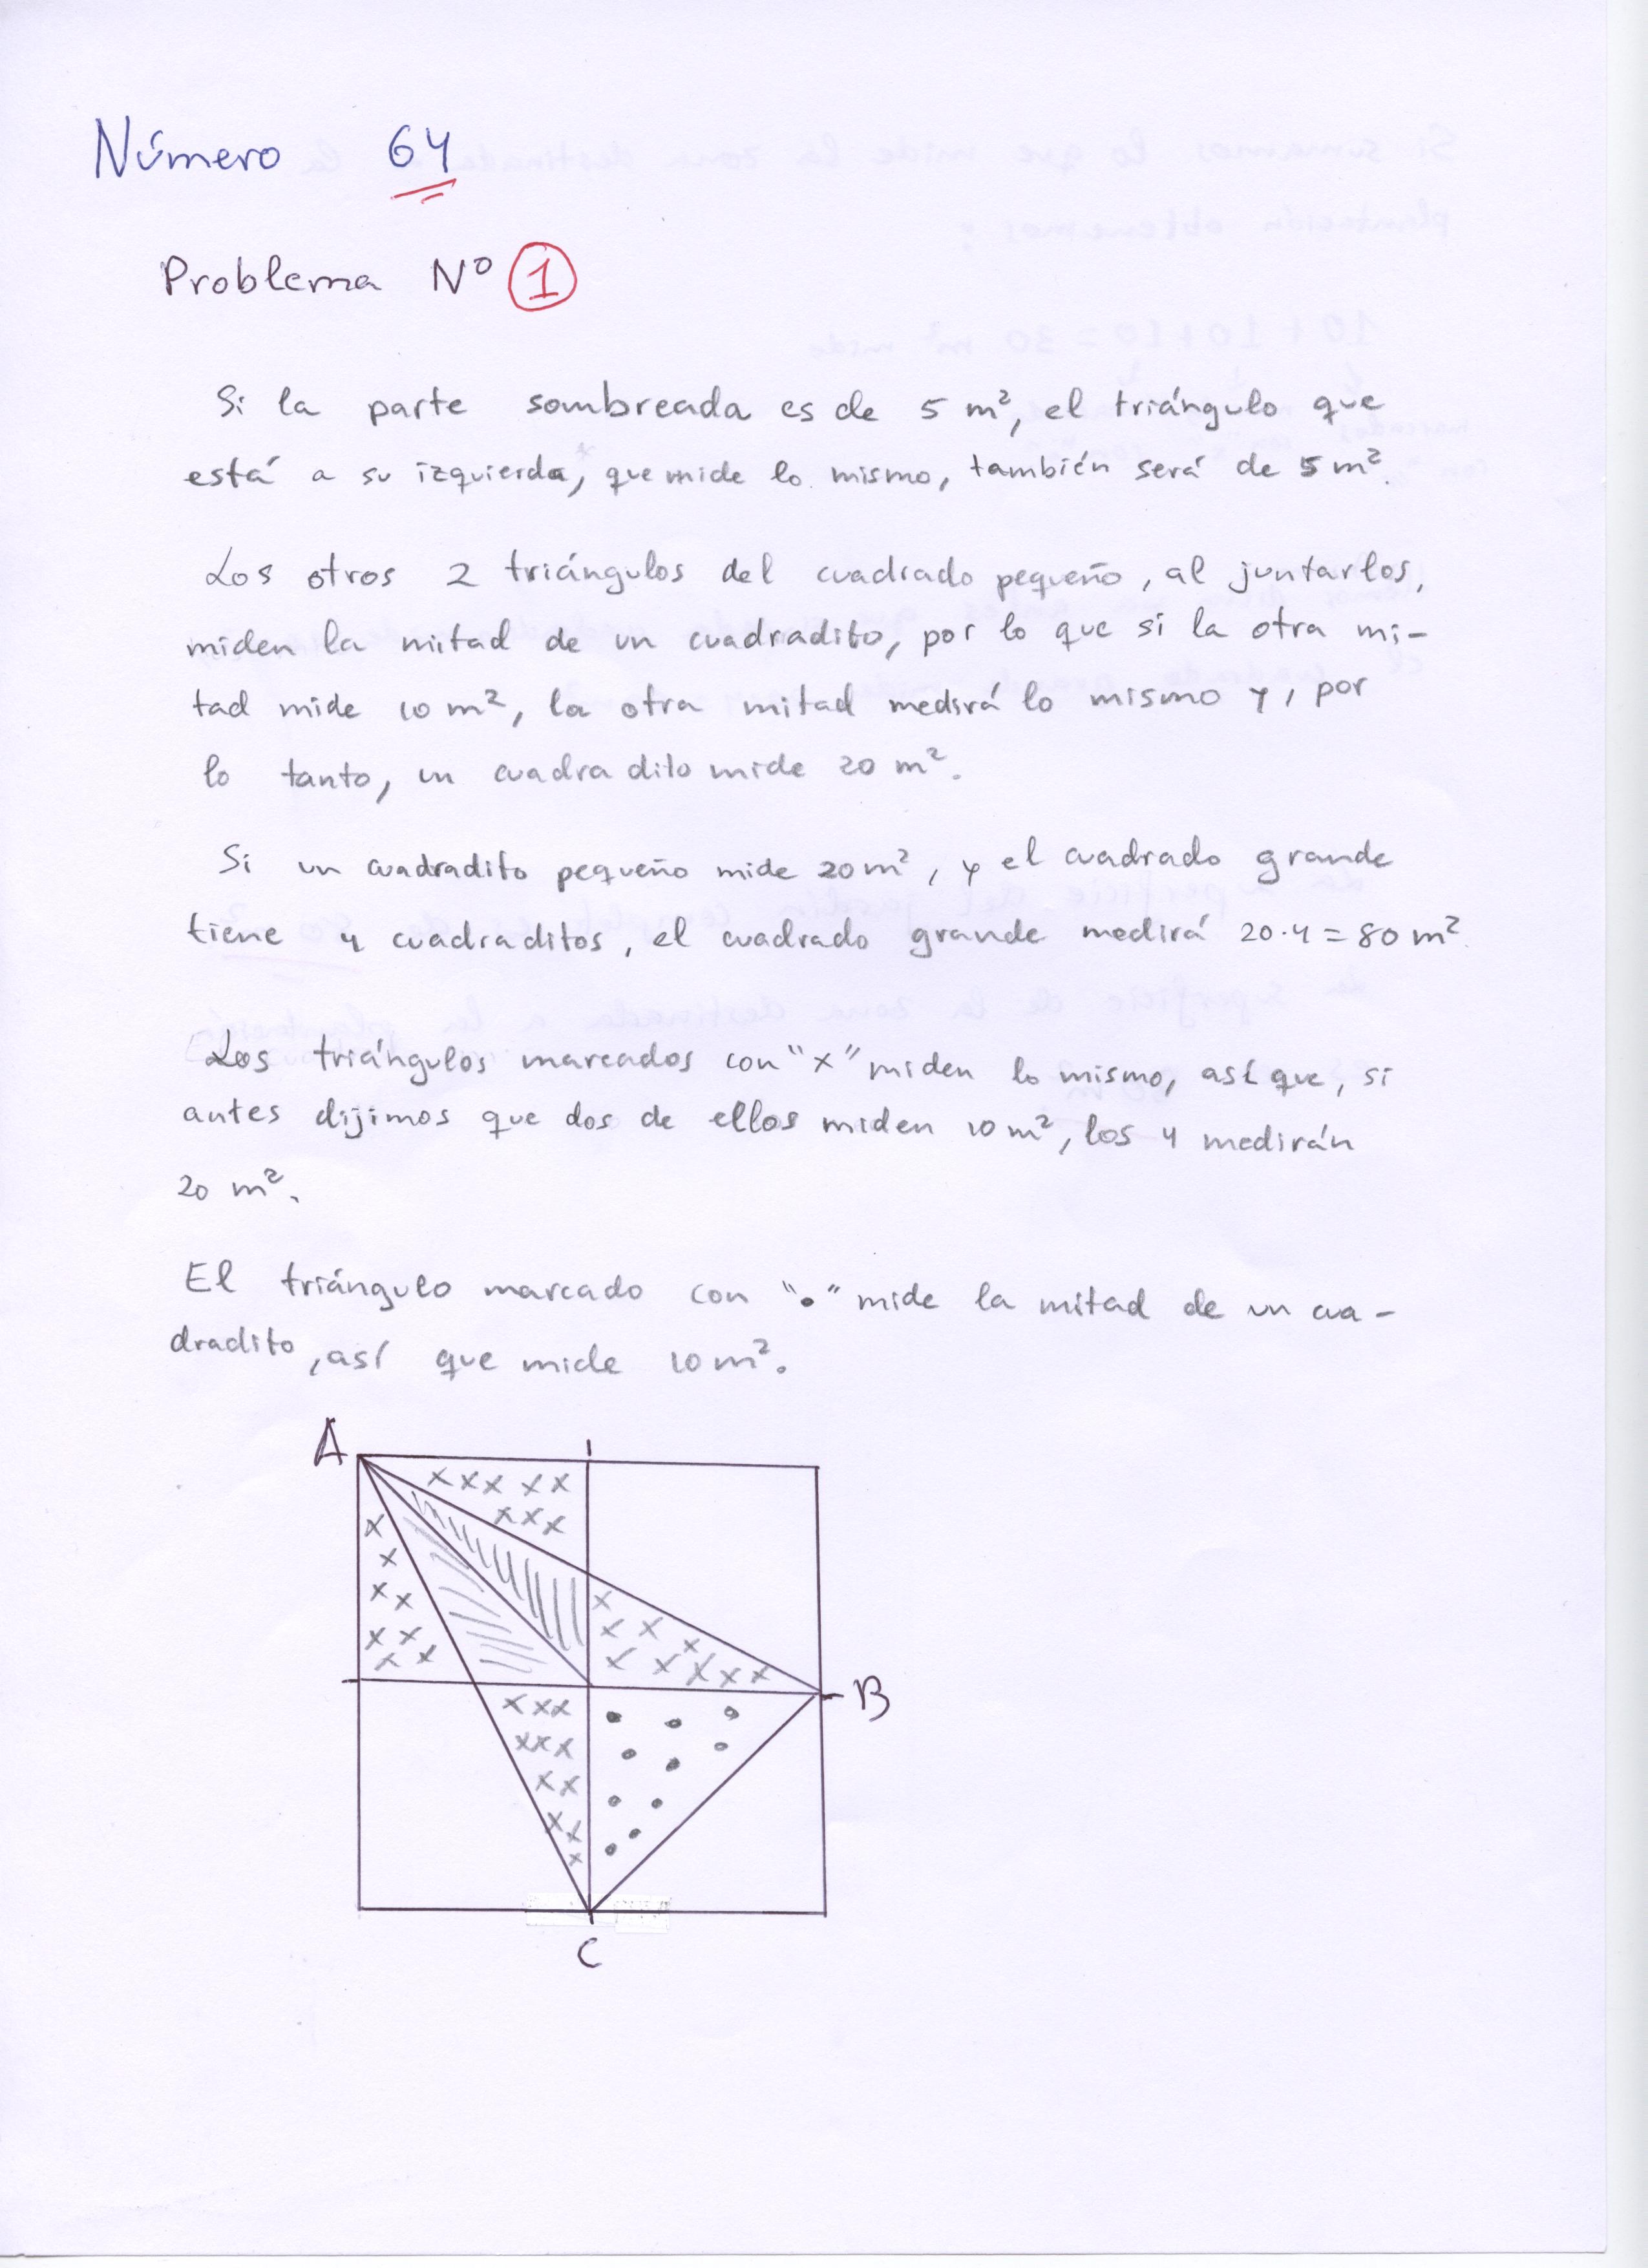 Número 64
Problema Nº 1
Si la parte sombreada es de 5 m², el triángulo que
está a su izquierda, que mide lo mismo, también será de 5 m².
Los otros 2 triángulos del cuadrado pequeño, al juntarlos,
miden la mitad de un cuadradito, por lo que si la otra mi-
tad mide 10 m², la otra mitad medirá lo mismo y, por
lo tanto, un cuadradito mide 20 m².
Si un cuadradito pequeño mide 20 m², y el cuadrado grande
tiene 4 cuadraditos, el cuadrado grande medirá 20·4 = 80 m².
Los triángulos marcados con "x" miden lo mismo, así que, si
antes dijimos que dos de ellos miden 10 m², los 4 medirán
20 m².
El triángulo marcado con "•" mide la mitad de un cua-
dradito, así que mide 10 m².
A
B
C